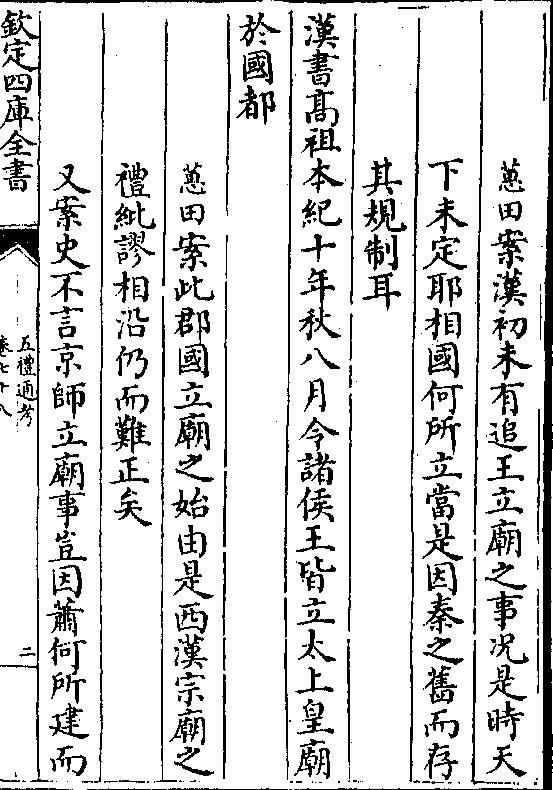 蕙田案漢初未有追王立廟之事况是時天
下未定耶相國何所立當是因秦之舊而存
其規制耳
漢書髙祖本紀十年秋八月令諸侯王皆立太上皇廟
於國都
蕙田案此郡國立廟之始由是西漢宗廟之
禮紕謬相沿仍而難正矣
又案史不言京師立廟事豈因蕭何所建而
欽定四庫全書
五禮通考
卷七十八
二